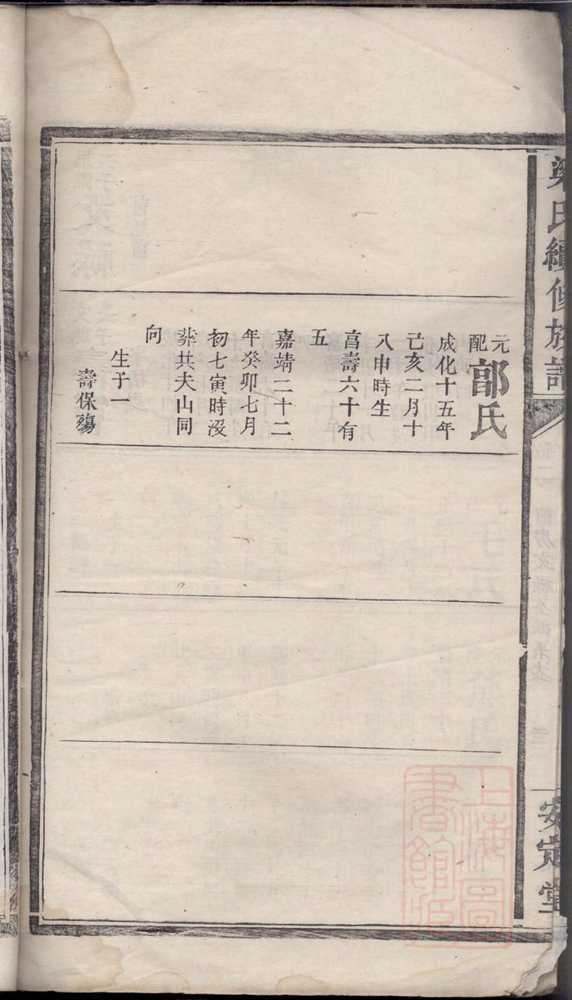 梁氏續修族譜
安定堂
元配郭氏
成化十五年
己亥二月十
八申時生
享壽六十有
五
嘉靖二十二
年癸卯七月
初七寅時沒
葬共夫山同
向
生子一
壽保殤
上海圖
書館藏